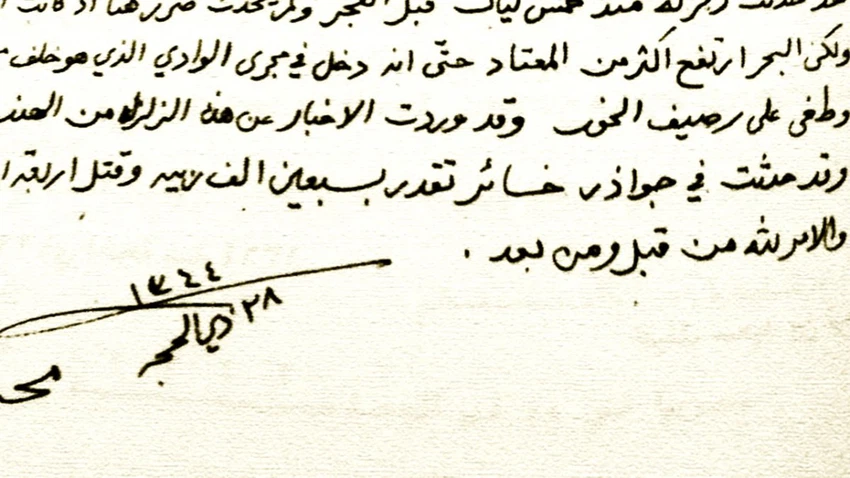 زلزلة منذ خمس ليال قبل الفجر ولم يحدث ضرر هنا اذ كانت
ولكن البحر ارتفع اكثر من المعتاد حتّى انه دخل في مجرى الوادي الذي هو خلف
وطفى على رصيف الخور وقد وردت الاخبار عن هذه الزلزله من الهند
وقد حدثت في جواذر خسائر تقدر بسبعين الف ربيه وقتل اربعة
والامر لله من قبل ومن بعد .
١٣٤٤
٢٨ ذي الحجر